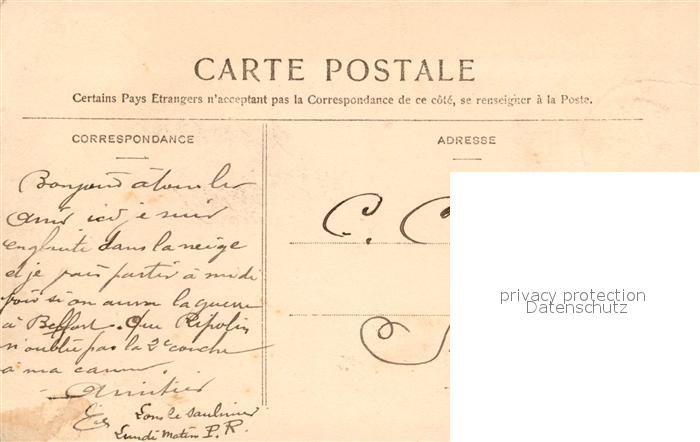 CARTE POSTALE
Certains Pays Etrangers n'acceptant pas la Correspondance de ce côté, se renseigner à la Poste.
CORRESPONDANCE
ADRESSE
Bonjour à tous les
amis ici je suis
dans la neige
et je pars partir à midi
voir si on aura la guerre
à Belfort. Que Ripolin
n'oublie pas la 2e couche
a ma canne.
Amitiés
Lons le Saulnier
Lundi Matin P. R.
C. C
privacy protection
Datenschutz